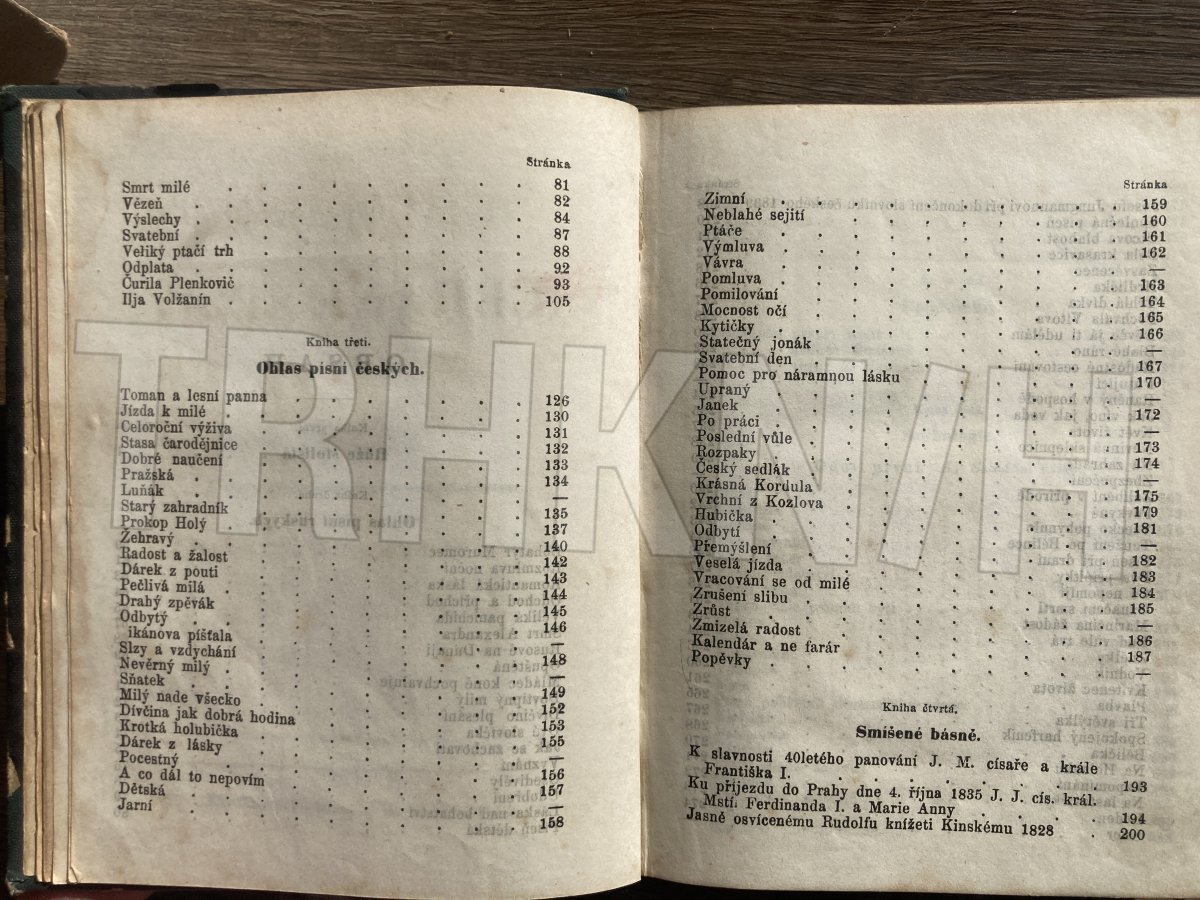 Stránka
Smrt milé . . . . . . . . . 81
Vězeň . . . . . . . . . 82
Výslechy . . . . . . . . . 84
Svatební . . . . . . . . . 87
Veliký ptačí trh . . . . . . . . 88
Odplata . . . . . . . . . 92
Čurila Plenkovič . . . . . . . . 93
Ilja Volžanín . . . . . . . . . 105
Kniha třetí.
Ohlas písní českých.
Toman a lesní panna . . . . . . . 126
Jízda k milé . . . . . . . . . 130
Celoroční výživa . . . . . . . . 131
Stasa čarodějnice . . . . . . . . 132
Dobré naučení . . . . . . . . 133
Pražská . . . . . . . . . 134
Luňák . . . . . . . . . —
Starý zahradník . . . . . . . . 135
Prokop Holý . . . . . . . . . 137
Žehravý . . . . . . . . . 140
Radost a žalost . . . . . . . . 142
Dárek z pouti . . . . . . . . 143
Pečlivá milá . . . . . . . . . 144
Drahý zpěvák . . . . . . . . 145
Odbytý . . . . . . . . . 146
ikánova píšťala . . . . . . . . —
Slzy a vzdychání . . . . . . . . 148
Nevěrný milý . . . . . . . . —
Sňatek . . . . . . . . . 149
Milý nade všecko . . . . . . . . 152
Divčina jak dobrá hodina . . . . . . 153
Krotká holubička . . . . . . . . 155
Dárek z lásky . . . . . . . . —
Pocestný . . . . . . . . . 156
A co dál to nepovím . . . . . . . 157
Dětská . . . . . . . . . —
Jarní . . . . . . . . . 158
Stránka
Zimní . . . . . . . . . 159
Neblahé sejití . . . . . . . . 160
Ptáče . . . . . . . . . 161
Výmluva . . . . . . . . . 162
Vávra . . . . . . . . . —
Pomluva . . . . . . . . . 163
Pomilování . . . . . . . . . 164
Mocnost očí . . . . . . . . . 165
Kytičky . . . . . . . . . 166
Statečný jonák . . . . . . . . —
Svatební den . . . . . . . . 167
Pomoc pro náramnou lásku . . . . . . 170
Upraný . . . . . . . . . —
Janek . . . . . . . . . 172
Po práci . . . . . . . . . —
Poslední vůle . . . . . . . . 173
Rozpaky . . . . . . . . . 174
Český sedlák . . . . . . . . —
Krásná Kordula . . . . . . . . 175
Vrchní z Kozlova . . . . . . . . 179
Hubička . . . . . . . . . 181
Odbytí . . . . . . . . . —
Přemýšlení . . . . . . . . . 182
Veselá jízda . . . . . . . . . 183
Vracování se od milé . . . . . . . 184
Zrušení slibu . . . . . . . . 185
Zrůst . . . . . . . . . —
Zmizelá radost . . . . . . . . 186
Kalendár a ne farár . . . . . . . 187
Popěvky . . . . . . . . . —
Kniha čtvrtá.
Smíšené básně.
K slavnosti 40letého panování J. M. císaře a krále
Františka I. . . . . . . . . . 193
Ku příjezdu do Prahy dne 4. října 1835 J. J. cís. král.
Mstí. Ferdinanda I. a Marie Anny . . . . 194
Jasně osvícenému Rudolfu knížeti Kinskému 1828 . 200
TRHKNIH